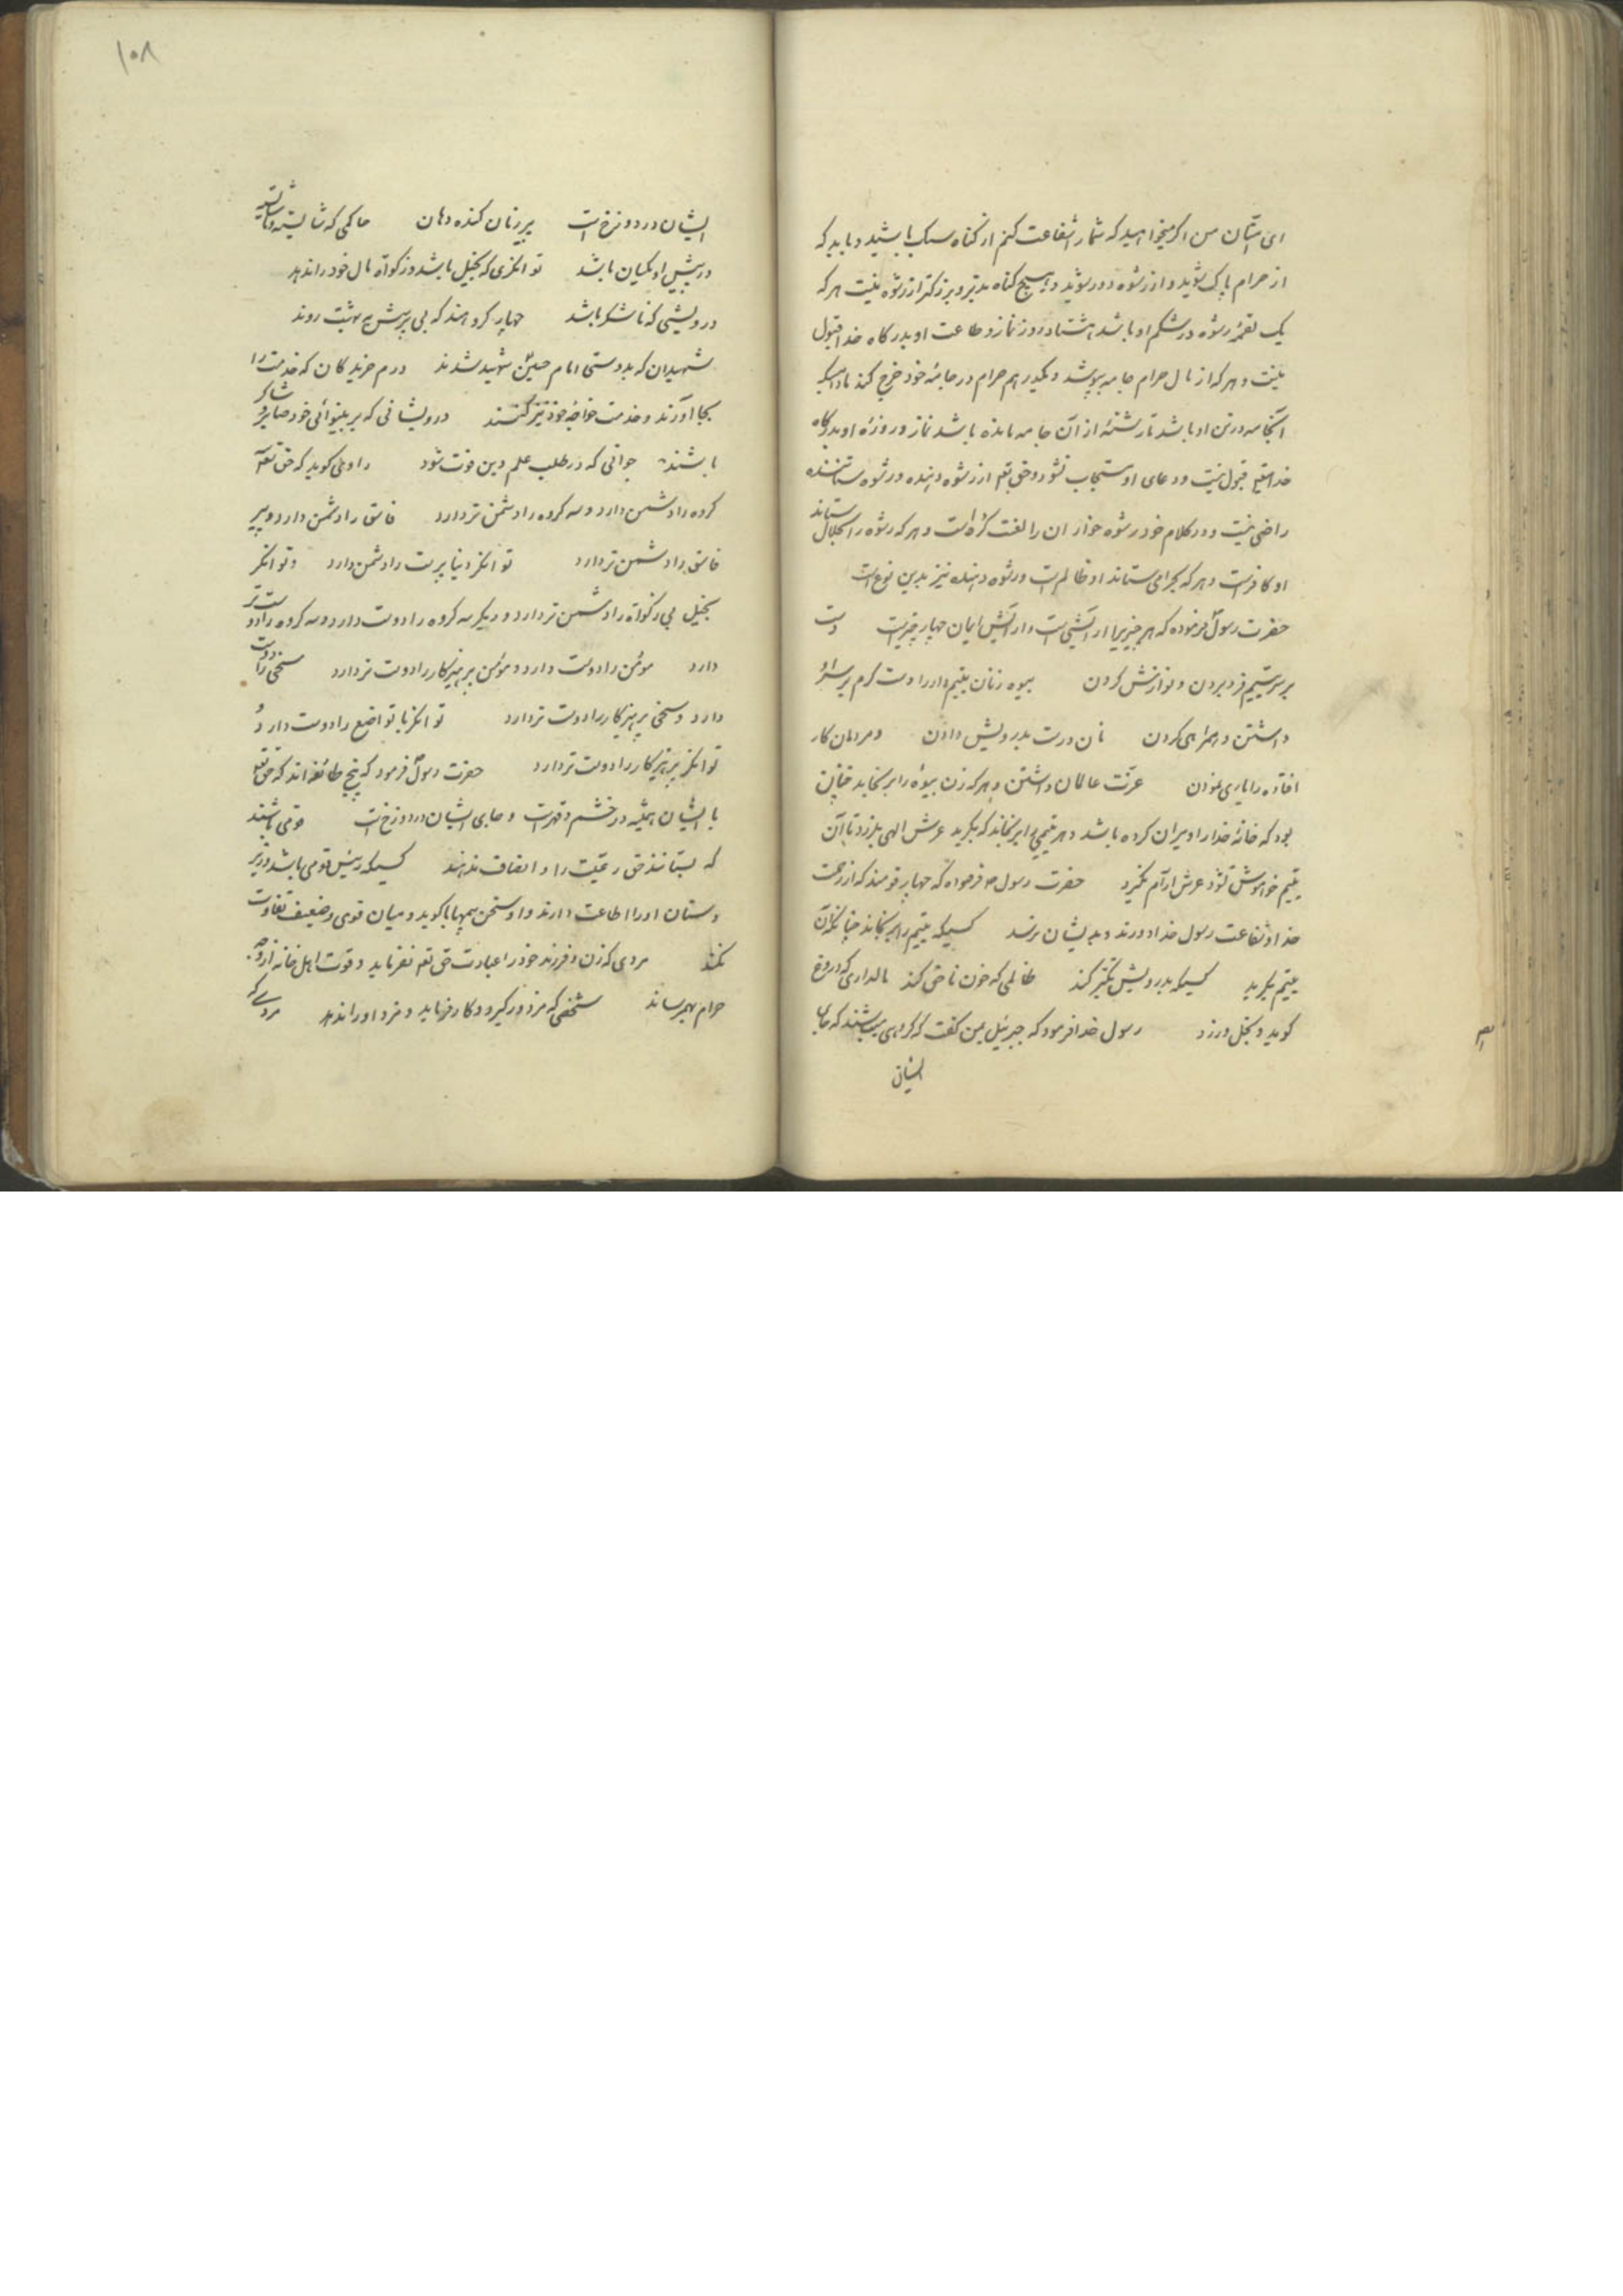 ای امتان من اگر میخواهید که شما را شفاعت کنم از گناه سبک باشید و باید که
از حرام پاک شوید و از رشوه دور شوید و هیچ گناه بدتر و بزرکتر از رشوه نیست هر که
یک لقمه رشوه در شکم او باشد هشتاد روز نماز و طاعت او بدرگاه خدا قبول
نیست و هر که از مال حرام جامه بپوشد و یکدرهم حرام در جامهٔ خود خرج کند مادامیکه
آنجامه در تن او باشد تا رشتهٔ از آن جامه مانده باشد نماز و روزهٔ او بدرگاه
خدایتع قبول نیست و دعای او مستجاب نشود و حق تع از رشوه دهنده و رشوه ستاننده
راضی نیست و در کلام خود رشوه خواران را لعنت کرده است و هر که رشوه را بحلال ستاند
او کافر است و هر که بحرامی ستاند او ظالم است و رشوه دهنده نیز بدین نوع است
حضرت رسول فرموده که هر چیزیرا ارایشی است و ارایش ایمان چهار چیز است دست
بر سر یتیم فرو بردن و نوازش کردن بیوه زنان یتیم دار را دست کرم بر سر او
داشتن و همراهی کردن نان درست بدرویش دادن و مردمان کار
افتاده را یاری نمودن عزت عالمان داشتن و هر که زن بیوه را برنجاند چنان
بود که خانهٔ خدا را ویران کرده باشد و هر یتیمی را برنجاند که بگرید عرش الهی بلرزد تا آن
یتیم خواموش نشود عرش ارام نگیرد حضرت رسول ص فرموده که چهار قومند که از رحمت
خدا و شفاعت رسول خدا دورند و بدیشان نرسد کسیکه یتیم را برنجاند چنانکه آن
یتیم بگرید کسیکه بدرویش تکبر کند ظالمی که خون ناحق کند مالداری که دروغ
کوید و بخل ورزد رسول خدا فرمود که جبرئیل بمن کفت که کروهی میباشند که جای
ایشان
۱۰۸
ایشان در دوزخ است پیر زنان کنده دهان حاکمی که شایسته و ناشایسته
در پیش او یکسان باشد توانکری که بخیل باشد و زکوة مال خود را ندهد
درویشی که ناشکر باشد چهار کروهند که بی پرسش به بهشت روند
شهیدان که بدوستی امام حسین شهید شدند درم خریدکان که خدمت را
بجا آورند و خدمت خواجهٔ خود نیز کنند درویشانی که بر بینوائی خود صابر و شاکر
باشند جوانی که در طلب علم دین فوت شود راوی کوید که حق تع سه
کروه را دشمن دارد و سه کروه را دشمن تر دارد فاسق را دشمن دارد و پیر
فاسق را دشمن تر دارد توانکر دنیا پرست را دشمن دارد و توانکر
بخیل بی زکواة را دشمن تر دارد و دیکر سه کروه را دوست دارد و سه کروه را دوست تر
دارد مومن را دوست دارد و مومن پرهیزکار را دوست تر دارد سخی را دوست
دارد و سخی پرهیزکار را دوست تر دارد توانکر با تواضع را دوست دارد و
توانکر پرهیزکار را دوست تر دارد حضرت رسول فرمود که پنج طائفه اند که حق تع
با ایشان همیشه در خشم و قهر است و جای ایشان در دوزخ است قومی باشند
که بستانند حق رعیت را و انصاف ندهند کسیکه رئیس قومی باشد و زیر
دستان او را اطاعت دارند و او سخن بمهابا کوید و میان قوی و ضعیف تفاوت
نکند مردی که زن و فرزند خود را عبادت حق تع نفرماید و قوت اهل خانه از وجه
حرام بهم رساند شخصی که مزدور گیرد و کار فرماید و مزد او را ندهد مردی که